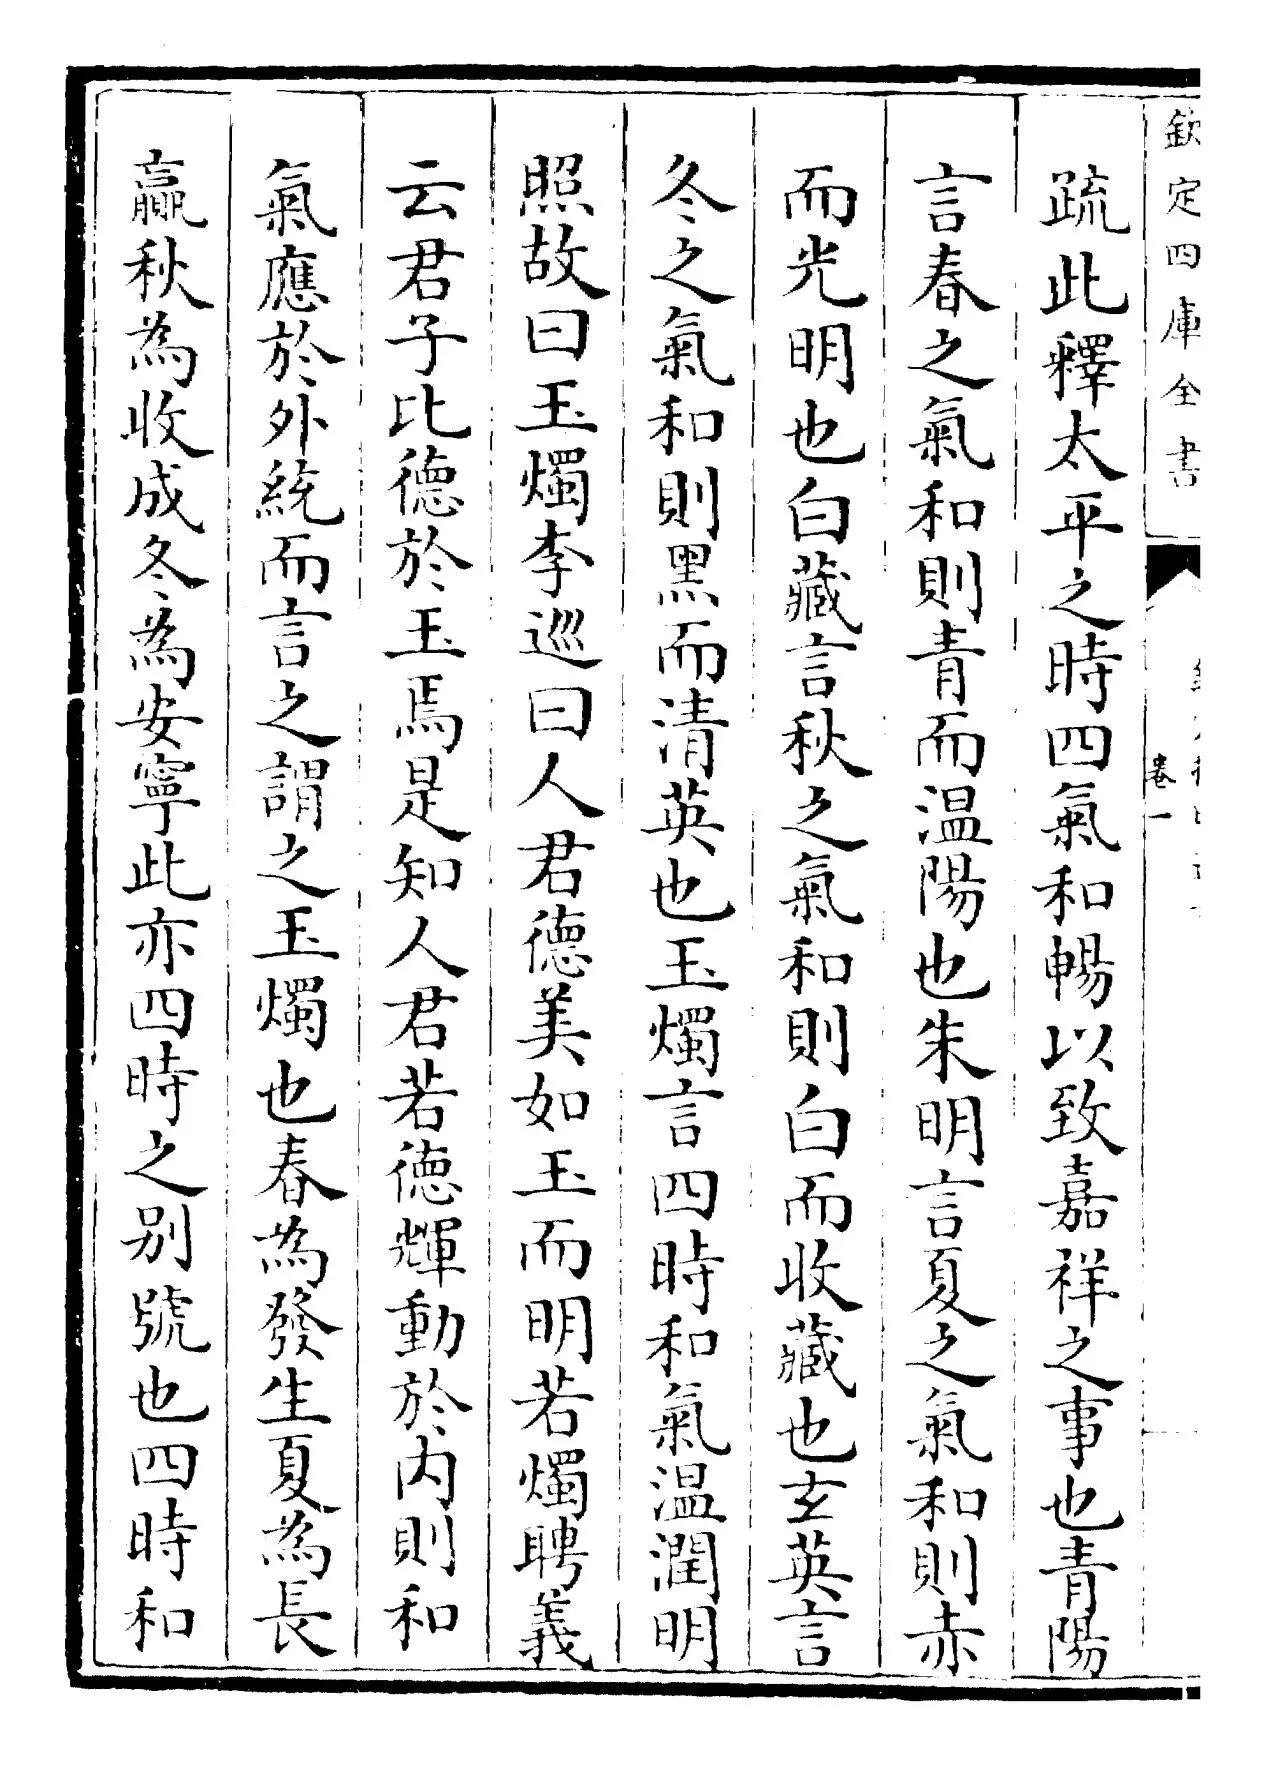 欽定四庫全書
卷一
疏此釋太平之時四氣和暢以致嘉祥之事也青陽
言春之氣和則青而温陽也朱明言夏之氣和則赤
而光明也白藏言秋之氣和則白而收藏也玄英言
冬之氣和則黑而清英也玉燭言四時和氣温潤明
照故曰玉燭李巡曰人君德美如玉而明若燭聘義
云君子比德於玉焉是知人君若德輝動於内則和
氣應於外統而言之謂之玉燭也春為發生夏為長
贏秋為收成冬為安寧此亦四時之别號也四時和